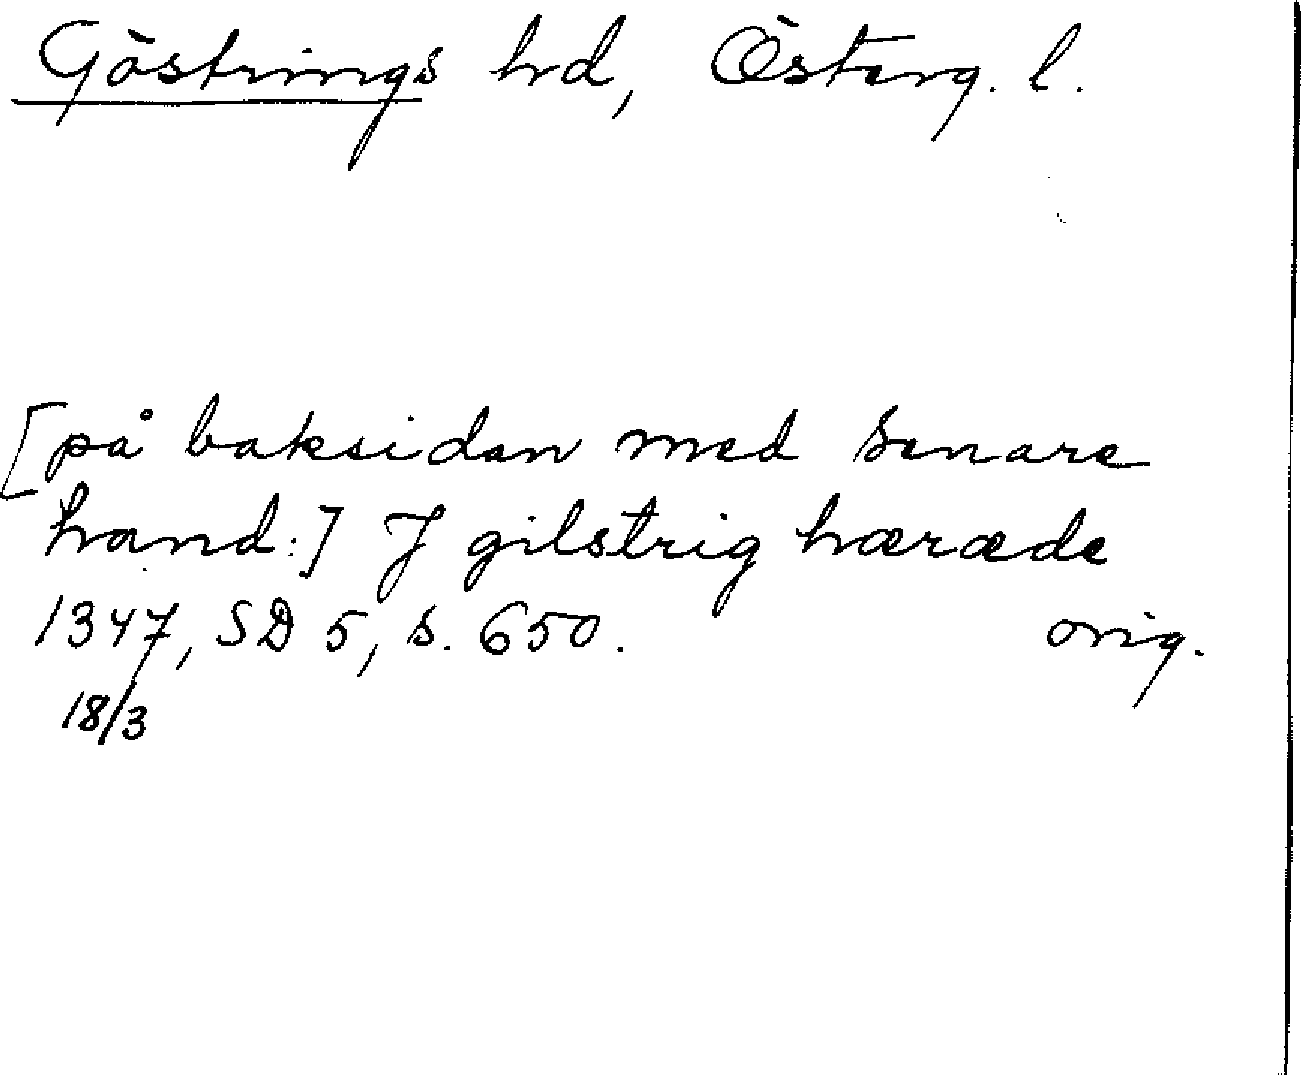 Göstrings hd, Österg. l.
[på baksidan med senare
hand:] J gilstrig hæræde
1347, SD 5, s. 650. orig.
18/3